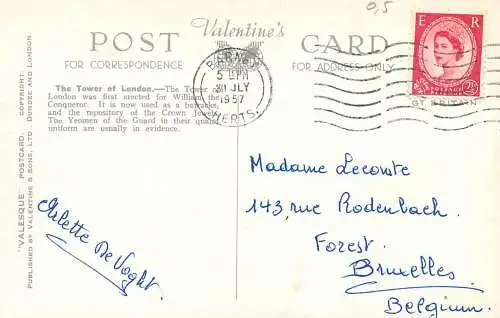 0,5
POST Valentine's CARD
FOR CORRESPONDENCE
FOR ADDRESS ONLY
The Tower of London.—The Tower of
London was first erected for William the
Conquetor. It is now used as a barracks,
and the repository of the Crown Jewels.
The Yeomen of the Guard in their quaint
uniform are usually in evidence.
5 15PM
JLY
1957
HERTS.
E R
POSTAGE
2½D
GT BRITAIN
"VALESQUE" POSTCARD. COPYRIGHT.
PUBLISHED BY VALENTINE & SONS, LTD., DUNDEE AND LONDON.
Arlette De Voght.
Madame Lecomte
143, rue Rodenbach
Forest.
Bruxelles
Belgium.